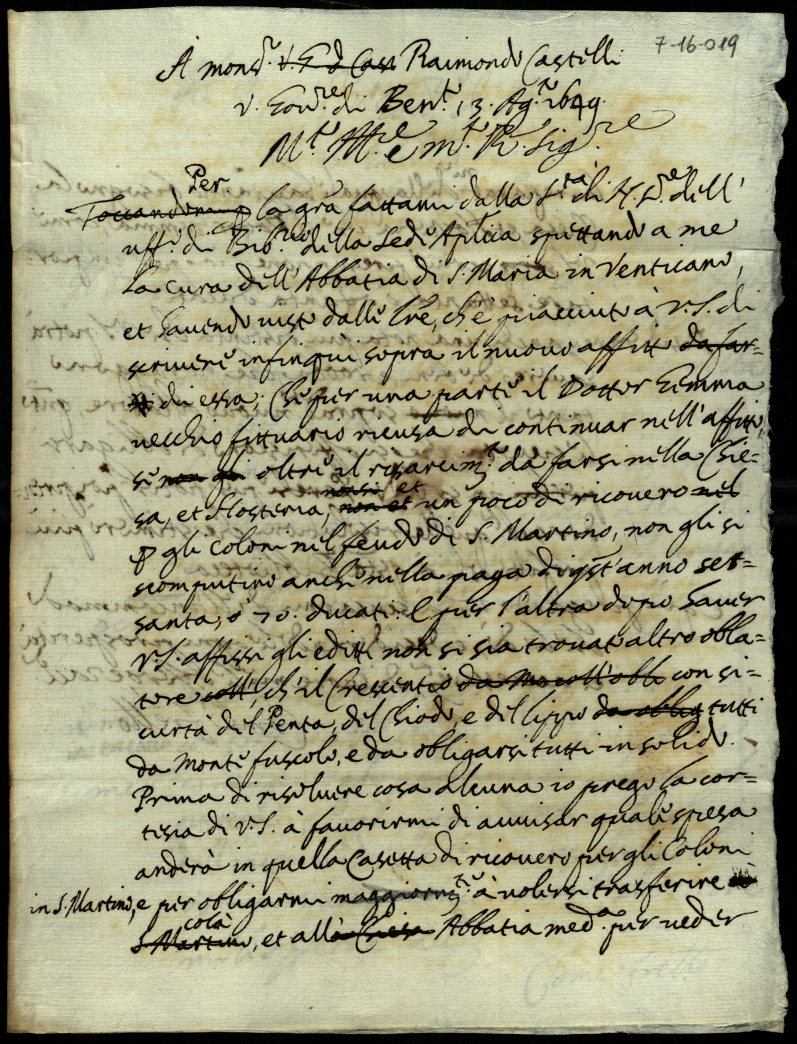 7-16-019
A mons.r Raimondo Castelli
V. Gov.re di Ben.to 13. Ag.to 1649.
M.to Ill.re e m.to R. Sig.re
Per
la gra fattami dalla S.tà di N. S.re dell'
uff.o di Bib.rio della Sede Aplica spettando a me
la cura dell'Abbatia di S. Maria in Venticano,
et havendo visto dalle lre, ch'è piacciuto à V.S. di
scrivere infinqui sopra il nuovo affitto da far=
di essa; Che per una parte il Dottor Gemma
vecchio fittuario ricusa di continuar nell'affitto,
se non gli oltre il risarcim.to da farsi nella Chie=
sa, et Hosteria, et un poco di ricovero nel
p gli coloni nel feudo di S. Martino, non gli si
scomputino anche nella paga di qst'anno ses=
santa, ò 70. ducati. E per l'altra dopo haver
V.S. affissi gli editti non si sia trovato altro obla=
tore coll' ch'il Crescentio con si=
curtà del Penta, del Chiodo, e del Lippo da oblig tutti
da Monte fuscolo, e da obligarsi tutti in solido.
Prima di risolvere cosa alcuna io prego la cor=
tesia di V.S. à favorirmi di avvisar quale spesa
anderà in quella Casetta di ricovero per gli Coloni
in S. Martino, e per obligarmi maggiorm.te à volersi trasferire
colà
S. Martino, et alla Chiesa Abbatia med.a per veder